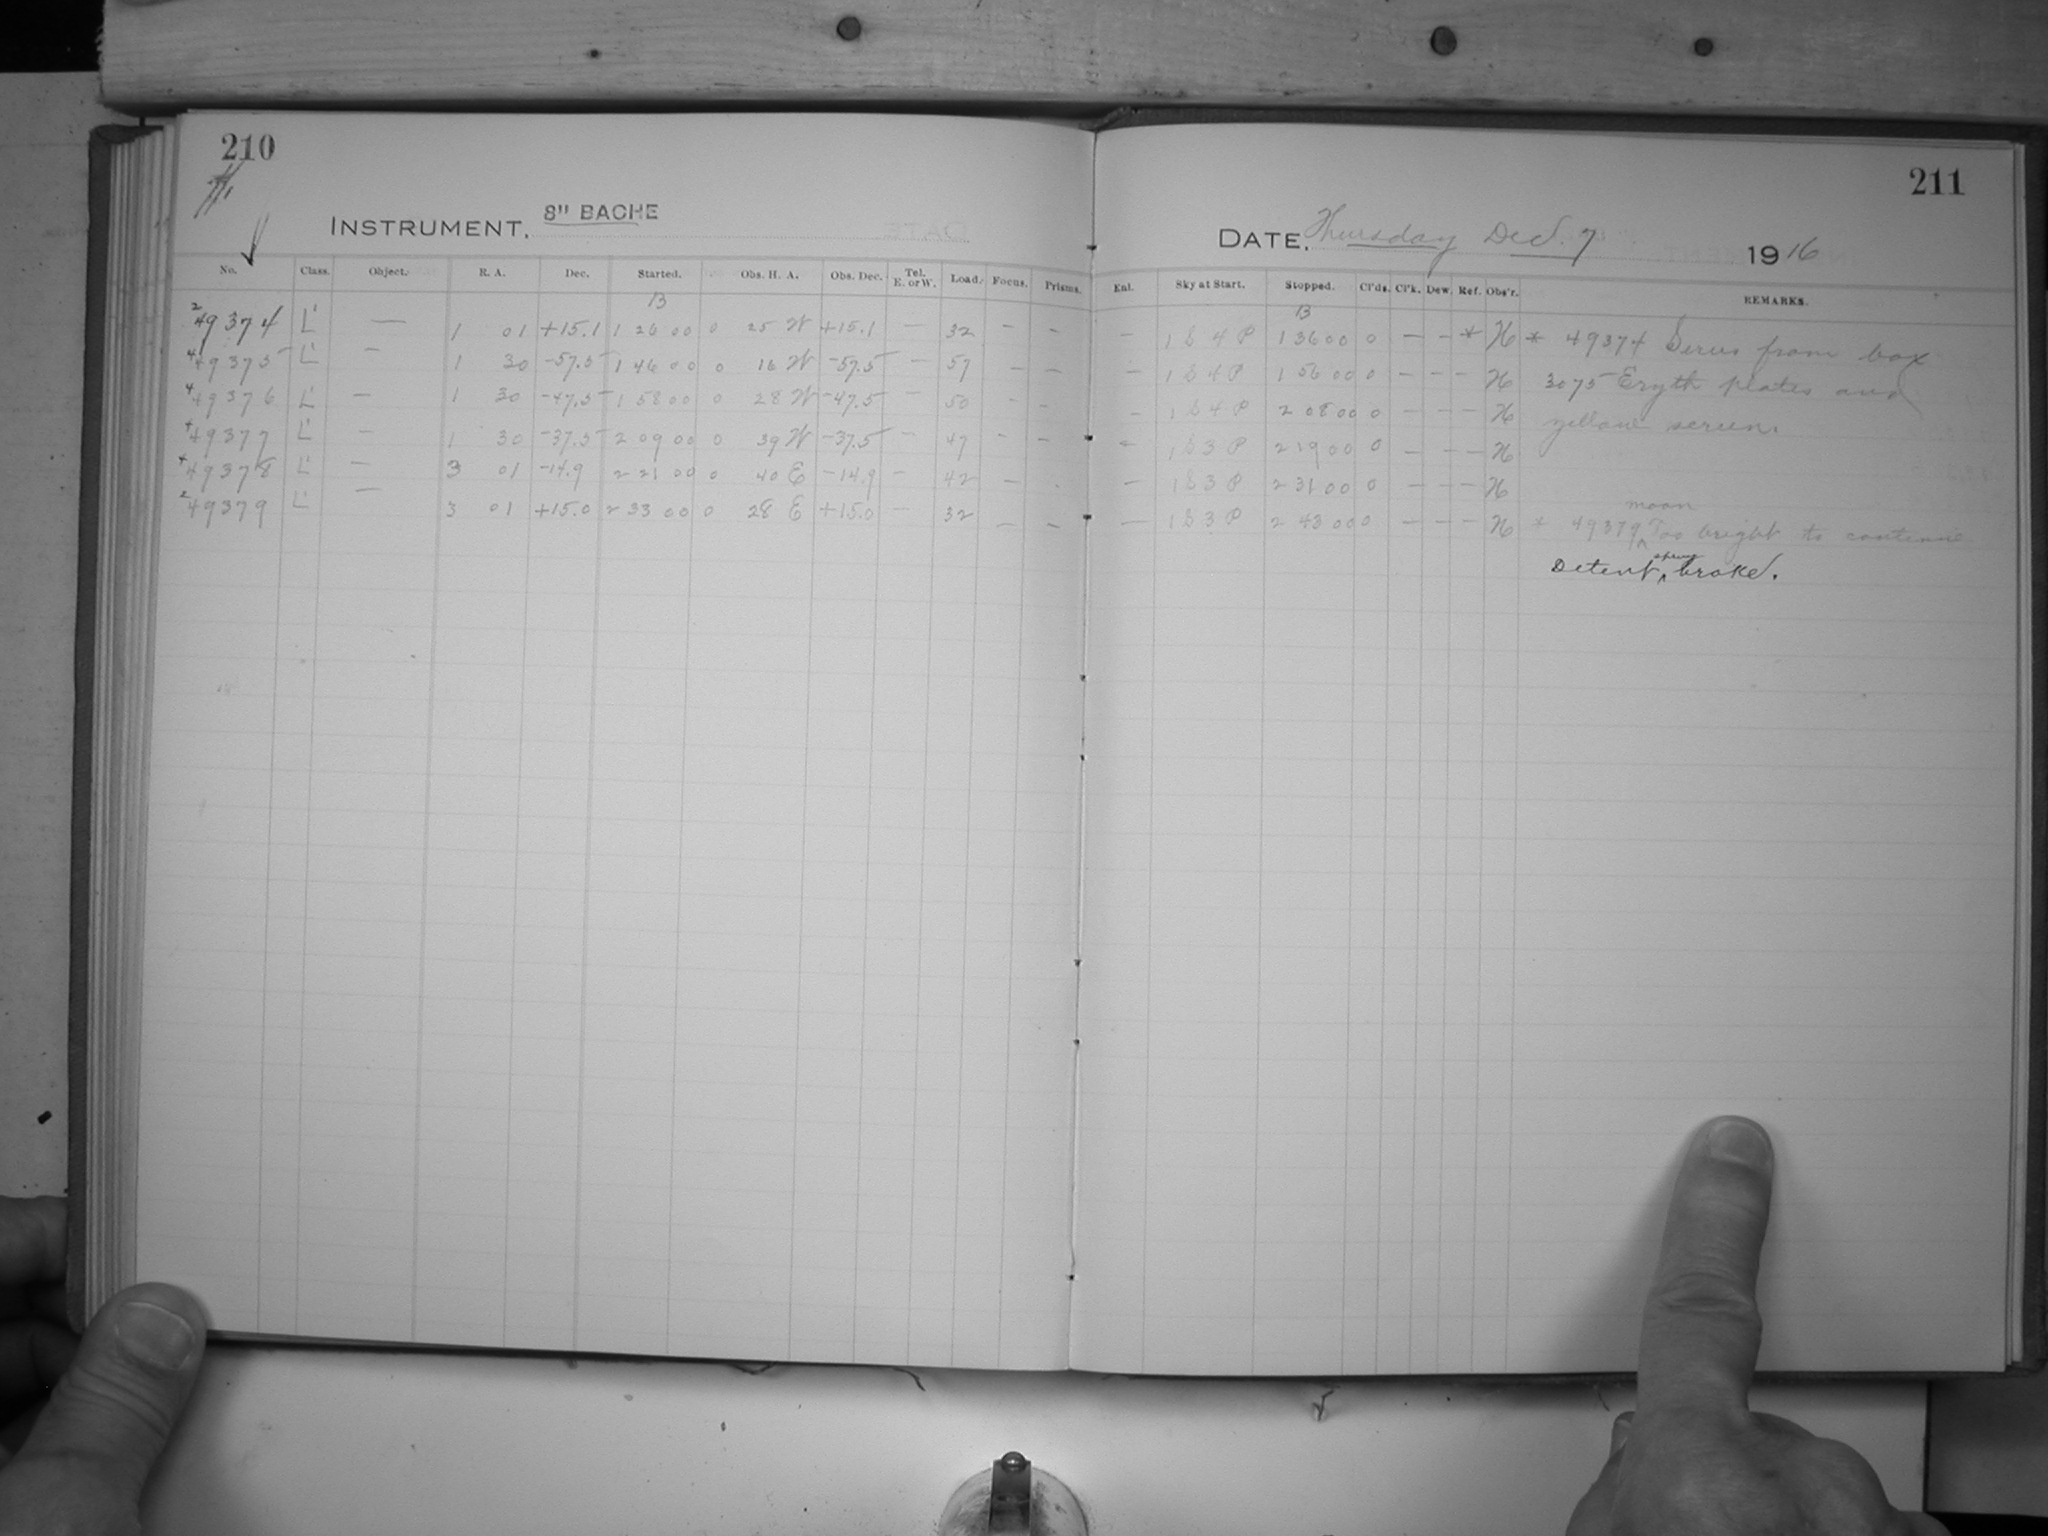 210
INSTRUMENT. 8" BACHE
No. Class. Object. R. A. Dec. Started. Obs. H. A. Obs. Dec. Tel. E. or W. Load. Focus. Prisms.
B
2 49374 L' — 1 01 +15.1 1 26 00 0 25 W +15.1 — 32 — —
4 49375 L' — 1 30 -57.5 1 46 00 0 16 W -57.5 — 57 — —
4 49376 L' — 1 30 -47.5 1 58 00 0 28 W -47.5 — 50 — —
4 49377 L' — 1 30 -37.5 2 09 00 0 39 W -37.5 — 47 — —
4 49378 L' — 3 01 -14.9 2 21 00 0 40 E -14.9 — 42 — -
2 49379 L' — 3 01 +15.0 2 33 00 0 28 E +15.0 — 32 — —
211
DATE. Thursday Dec. 7 1916
Enl. Sky at Start. Stopped. Cl'ds. Cl'k. Dew. Ref. Obs'r. REMARKS.
B
— 1 S 4 P 1 36 00 0 — — * H * 49374 Series from box
— 1 S 4 P 1 56 00 0 — — — H 3075 Eryth plates and
— 1 S 4 P 2 08 00 0 — — — H yellow screen.
— 1 S 3 P 2 19 00 0 — — — H
— 1 S 3 P 2 31 00 0 — — — H
— 1 S 3 P 2 43 00 0 — — — H * 49379 moon Too bright to continue
Detent spring broke.